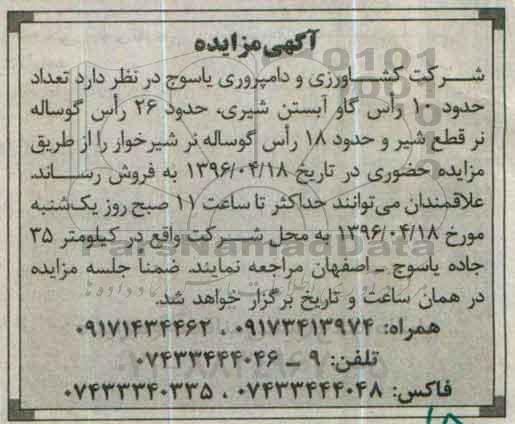 آگهی مزایده
شرکت کشاورزی و دامپروری یاسوج در نظر دارد تعداد
حدود ۱۰ رأس گاو آبستن شیری، حدود ۲۶ رأس گوساله
نر قطع شیر و حدود ۱۸ رأس گوساله نر شیرخوار را از طریق
مزایده حضوری در تاریخ ۱۳۹۶/۰۴/۱۸ به فروش رساند.
علاقمندان می‌توانند حداکثر تا ساعت ۱۱ صبح روز یک‌شنبه
مورخ ۱۳۹۶/۰۴/۱۸ به محل شرکت واقع در کیلومتر ۳۵
جاده یاسوج ـ اصفهان مراجعه نمایند. ضمناً جلسه مزایده
در همان ساعت و تاریخ برگزار خواهد شد.
همراه: ۰۹۱۷۳۴۱۳۹۷۴ ، ۰۹۱۷۱۴۳۴۴۶۲
تلفن: ۹ ـ ۰۷۴۳۳۴۴۴۰۴۶
فاکس: ۰۷۴۳۳۴۴۴۰۴۸ ، ۰۷۴۳۳۳۴۰۳۳۵
ParsNamadData